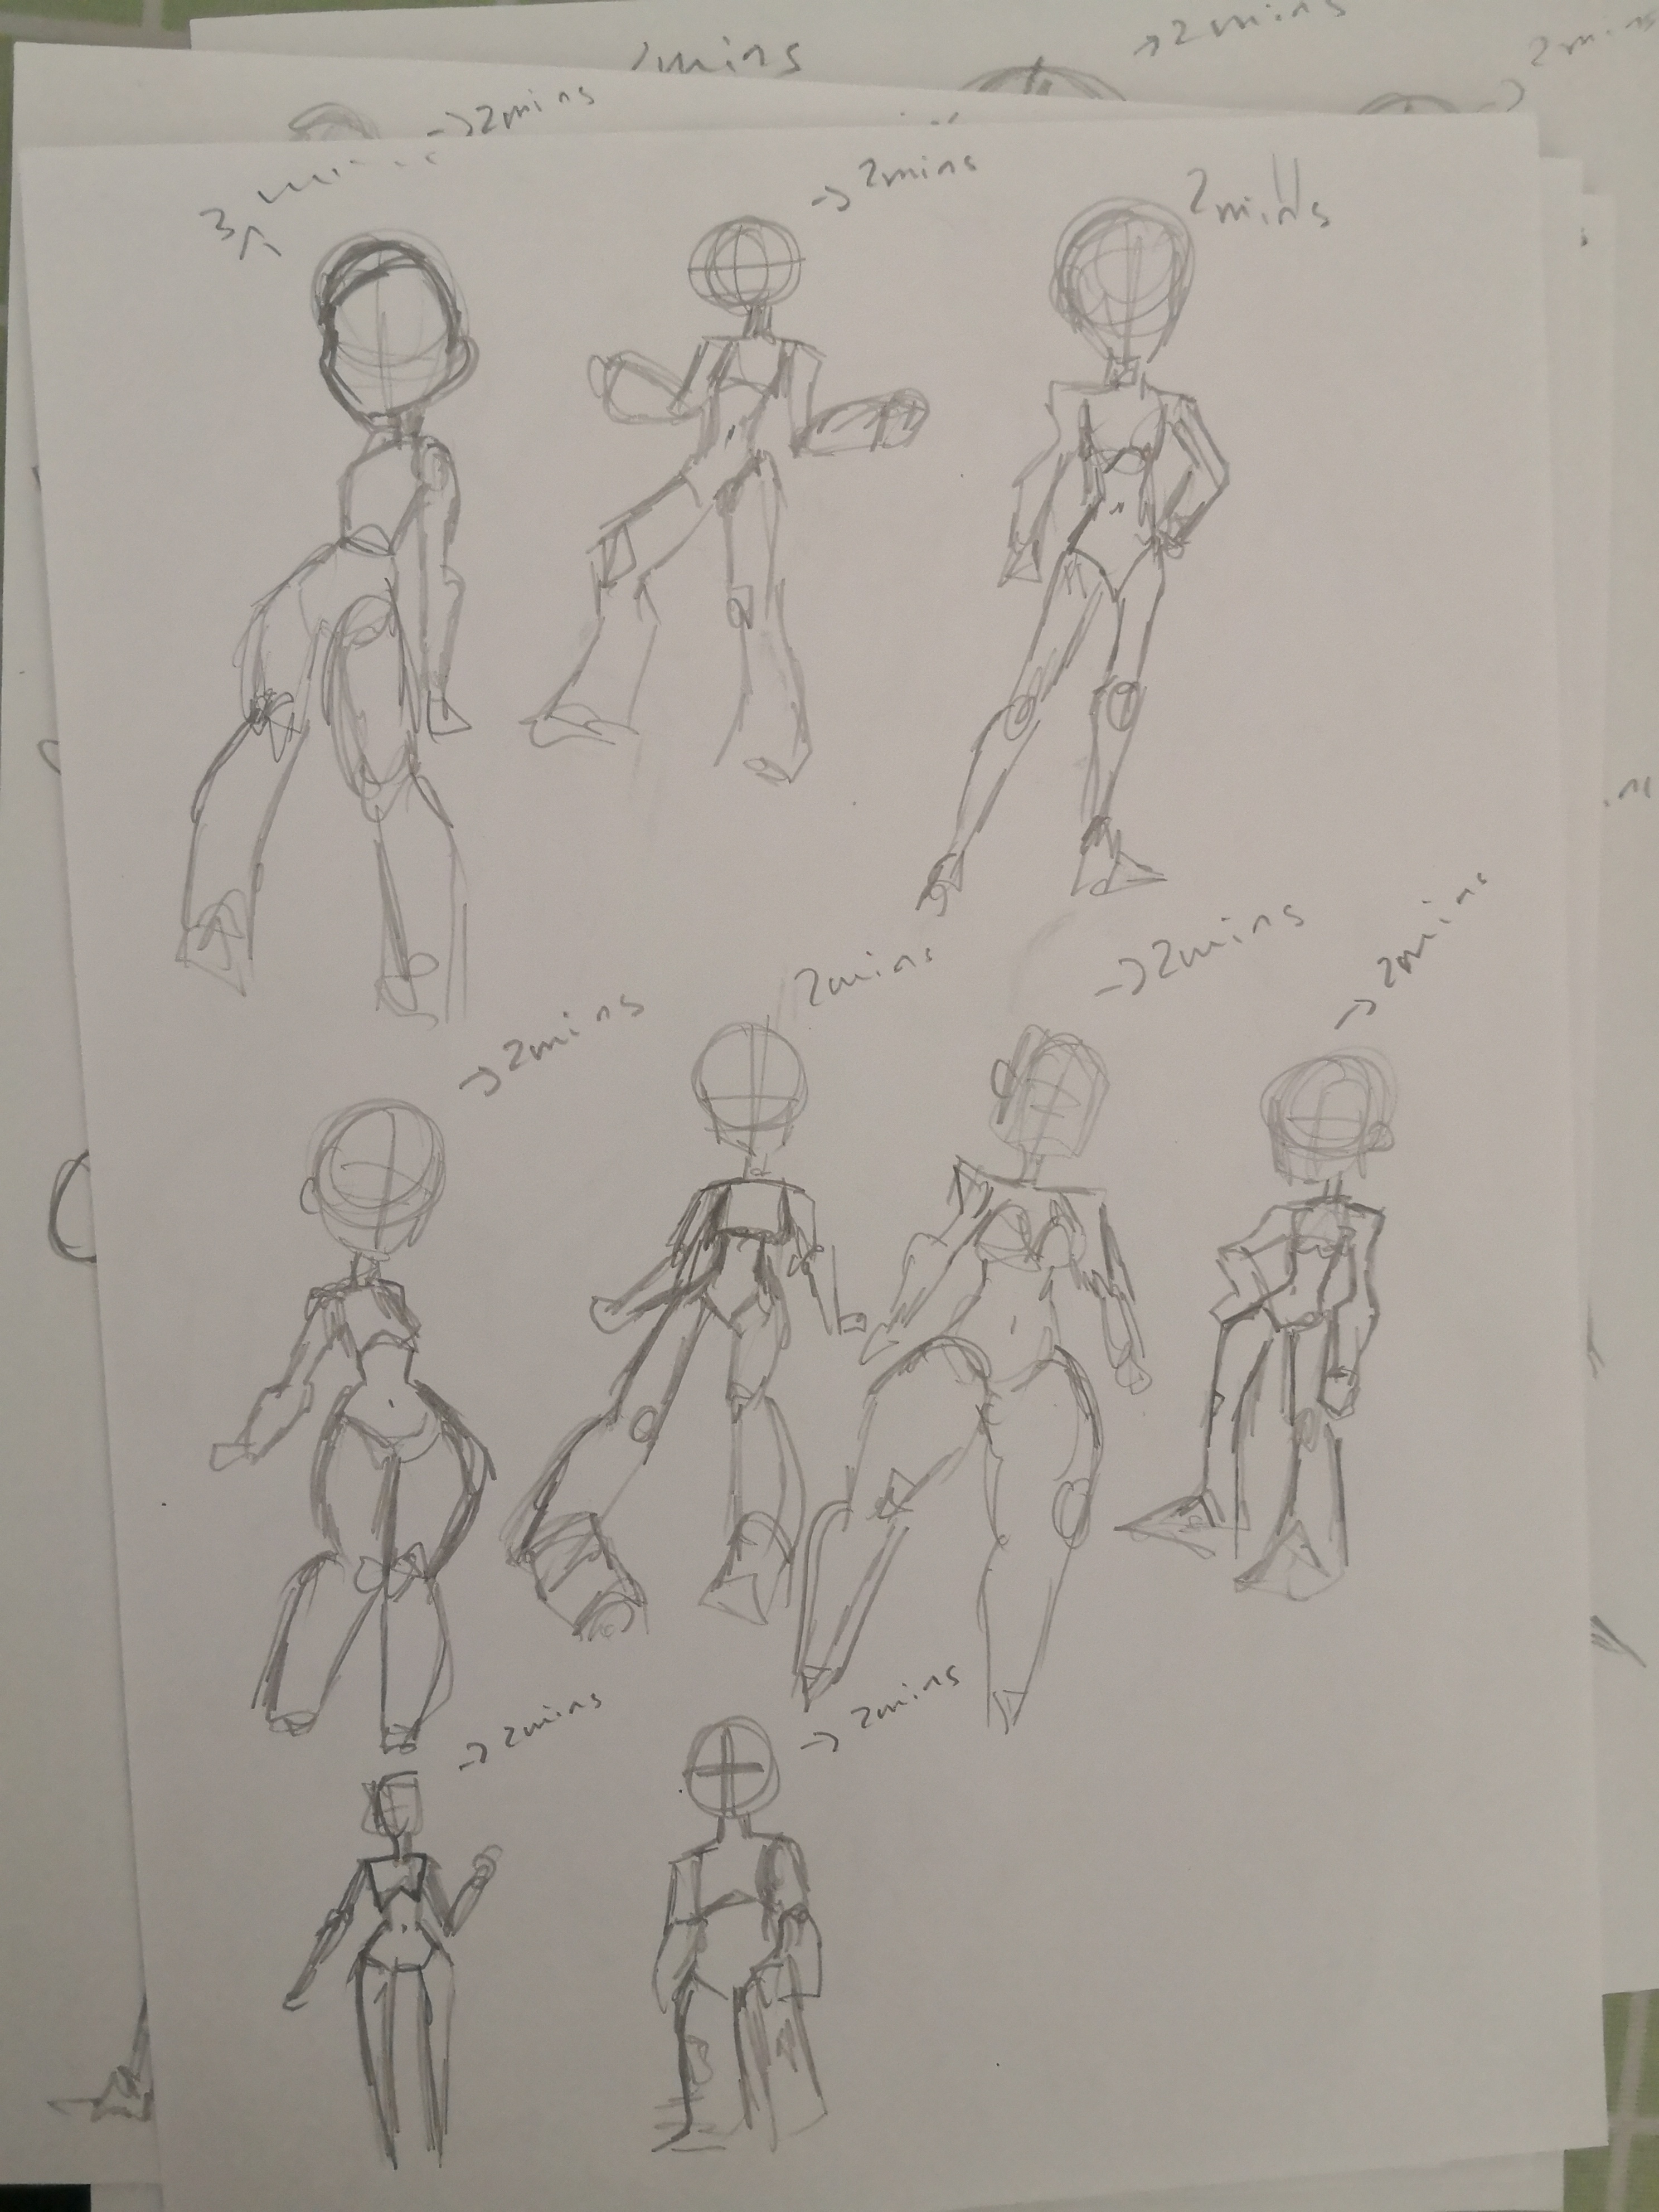 2mins
→2mins
2mins
→2mins
3 mins
→2mins
2mins
→2mins
2mins
→2mins
→2mins
→2mins
→2mins